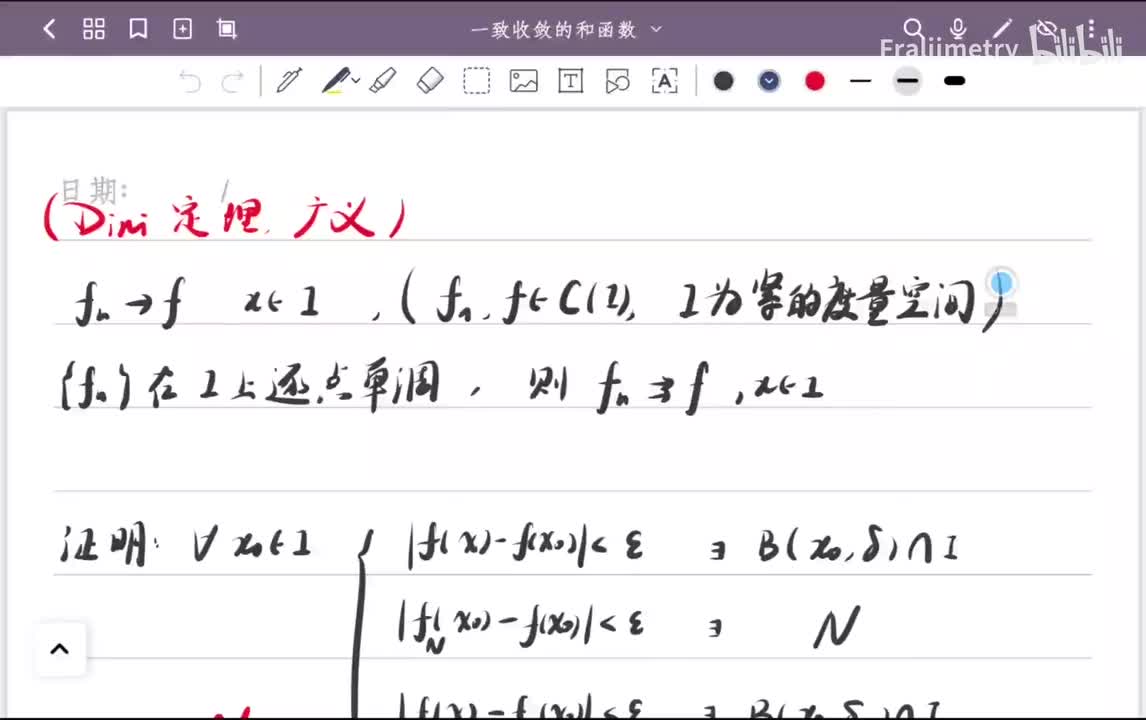 一致收敛的和函数
Fraljimetry bilibili
日期: /
(Dini 定理, 广义)
fₙ→f x∈I , (fₙ, f∈C(I), I为紧的度量空间)
{fₙ}在I上逐点单调, 则 fₙ⇉f , x∈I
证明: ∀x₀∈I { |f(x)-f(x₀)|<ε ∃ B(x₀,δ)∩I
|f_N(x₀)-f(x₀)|<ε ∃ N